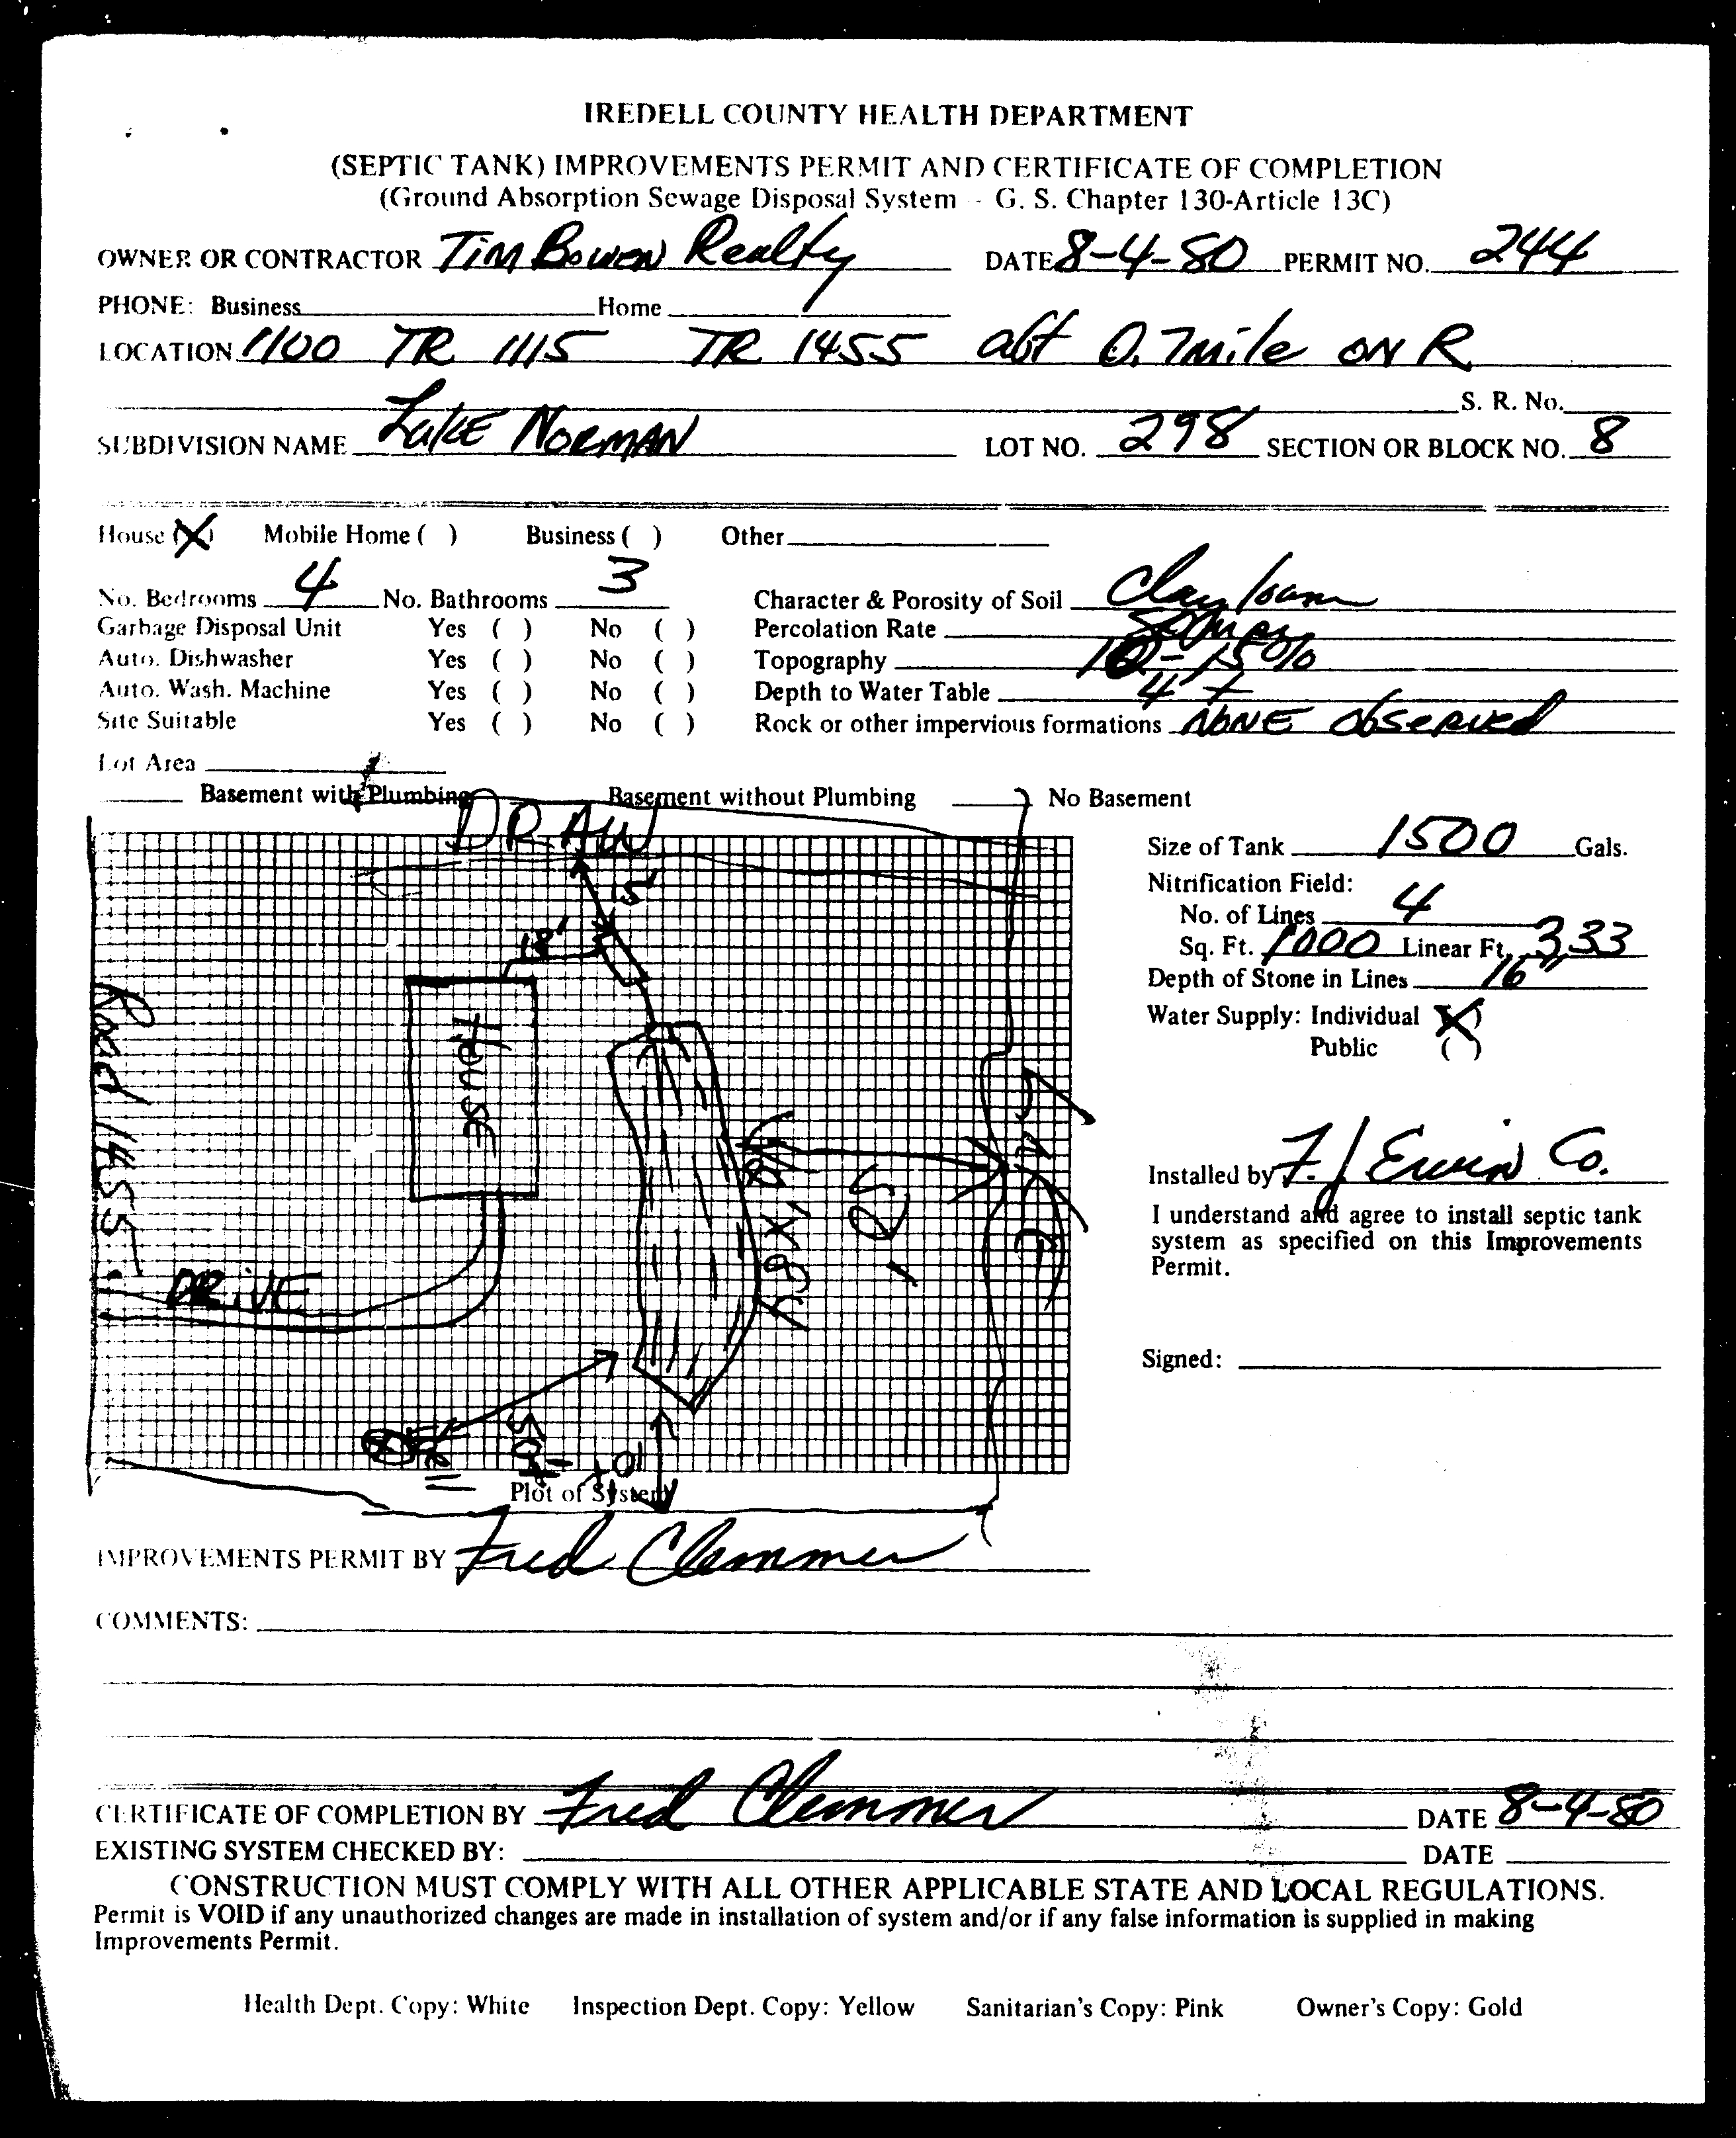 IREDELL COUNTY HEALTH DEPARTMENT
(SEPTIC TANK) IMPROVEMENTS PERMIT AND CERTIFICATE OF COMPLETION
(Ground Absorption Sewage Disposal System - G. S. Chapter 130-Article 13C)
OWNER OR CONTRACTOR Tim Bowen Realty DATE 8-4-80 PERMIT NO. 244
PHONE: Business Home
LOCATION 1100 TR 1115 TR 1455 abt 0.7 mile ON R
S. R. No.
SUBDIVISION NAME Lake Norman LOT NO. 298 SECTION OR BLOCK NO. 8
House (X) Mobile Home ( ) Business ( ) Other
No. Bedrooms 4 No. Bathrooms 3 Character & Porosity of Soil Clay loam
Garbage Disposal Unit Yes ( ) No ( ) Percolation Rate
Auto. Dishwasher Yes ( ) No ( ) Topography 10-15%
Auto. Wash. Machine Yes ( ) No ( ) Depth to Water Table 4'+
Site Suitable Yes ( ) No ( ) Rock or other impervious formations NONE observed
Lot Area
Basement with Plumbing Basement without Plumbing No Basement
DRAW
15'
18'
House
Road 1455
DRIVE
Lake
50'
10'
Plot of System
Size of Tank 1500 Gals.
Nitrification Field:
No. of Lines 4
Sq. Ft. 1000 Linear Ft. 333
Depth of Stone in Lines 16"
Water Supply: Individual (X)
Public ( )
Installed by F. J Erwin Co.
I understand and agree to install septic tank
system as specified on this Improvements
Permit.
Signed:
IMPROVEMENTS PERMIT BY Fred Clemmer
COMMENTS:
CERTIFICATE OF COMPLETION BY Fred Clemmer DATE 8-4-80
EXISTING SYSTEM CHECKED BY: DATE
CONSTRUCTION MUST COMPLY WITH ALL OTHER APPLICABLE STATE AND LOCAL REGULATIONS.
Permit is VOID if any unauthorized changes are made in installation of system and/or if any false information is supplied in making
Improvements Permit.
Health Dept. Copy: White Inspection Dept. Copy: Yellow Sanitarian's Copy: Pink Owner's Copy: Gold